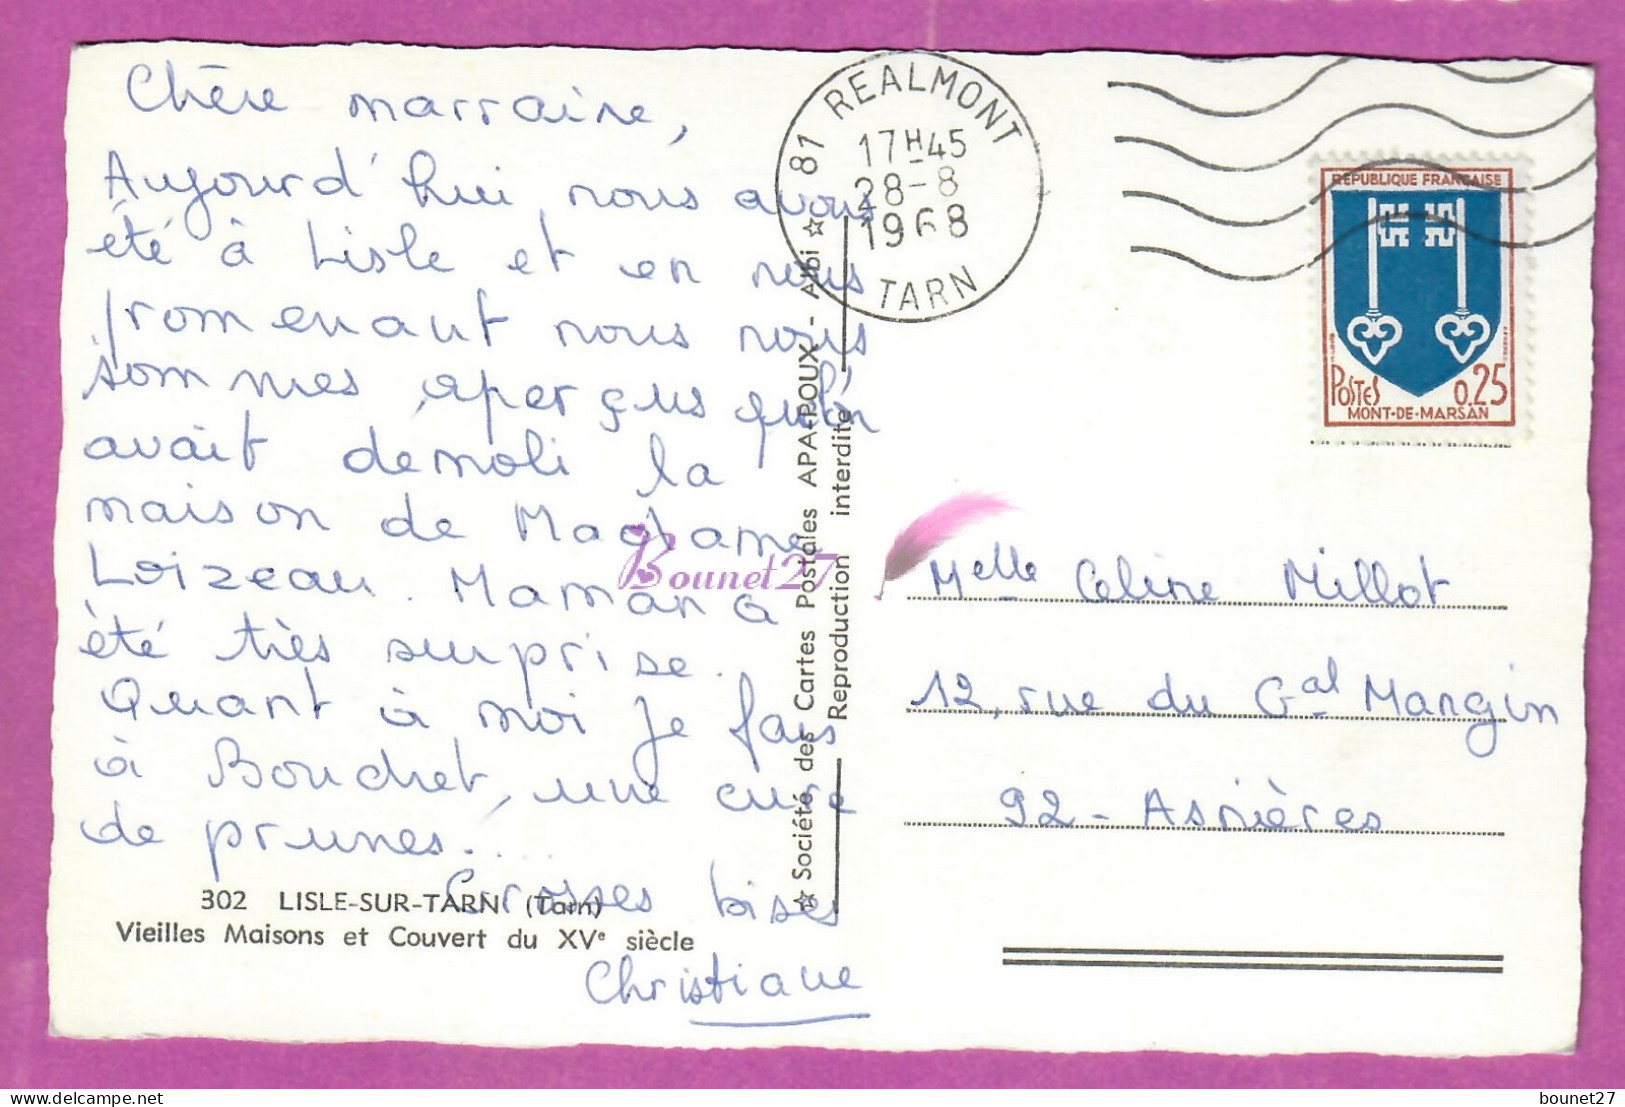 Chère marraine,
Aujourd'hui nous avons
été à Lisle et en nous
promenant nous nous
sommes aperçus qu'on
avait demoli la
maison de Madame
Loizeau. Maman a
été très surprise.
Quant à moi je fais
à Bouchet, une cure
de prunes....
Grosses bises
Christiane
302 LISLE-SUR-TARN (Tarn)
Vieilles Maisons et Couvert du XVe siècle
☆ Société des Cartes Postales APA-POUX - Albi ☆
Reproduction interdite
81 REALMONT
17H45
28-8
1968
TARN
REPUBLIQUE FRANÇAISE
POSTES 0,25
MONT-DE-MARSAN
Melle Celine Millot
12, rue du Gal Mangin
92 - Asnières
Bounet27
bounet27